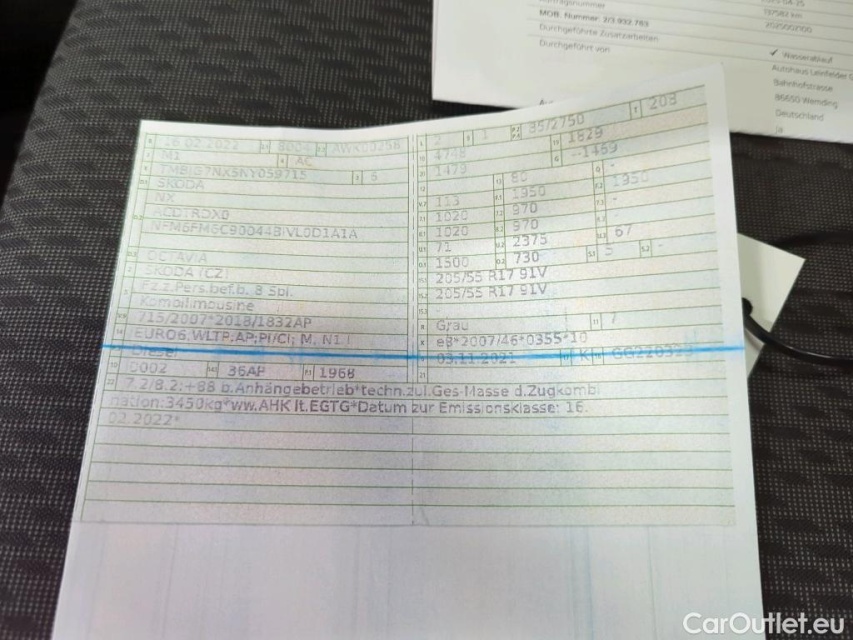 MOB. Nummer: 2/3.932.763
Durchgeführte Zusatzarbeiten
Durchgeführt von
137582 km
2025002100
✓ Wasserablauf
Autohaus Leinfelder G
Bahnhofstrasse
86650 Wemding
Deutschland
Ja
16.02.2022 8004 AWK00258
M1 AC
6
SKODA
NX
ACDTRDX0
NFM6FM6C90044BIVL0D1A1A
OCTAVIA
SKODA (CZ)
Fz.z.Pers.bef.b. 8 Spl.
Kombilimousine
715/2007*2018/1832AP
EURO6,WLTP;AP;PI/CI; M, N1 I
Diesel
0002 36AP 1968
2 1 85/2750 203
4748 1829
1479 --1469
60 -
113 1950 1950
1020 970 -
1020 970 -
71 2375 67
1500 730 5 -
205/55 R17 91V
205/55 R17 91V
Grau 7
e8*2007/46*0355*10
03.11.2021 K
7.2/8.2:+88 b.Anhängebetrieb*techn.zul.Ges-Masse d.Zugkombi
nation:3450kg*ww.AHK lt.EGTG*Datum zur Emissionsklasse: 16.
02.2022*
CarOutlet.eu